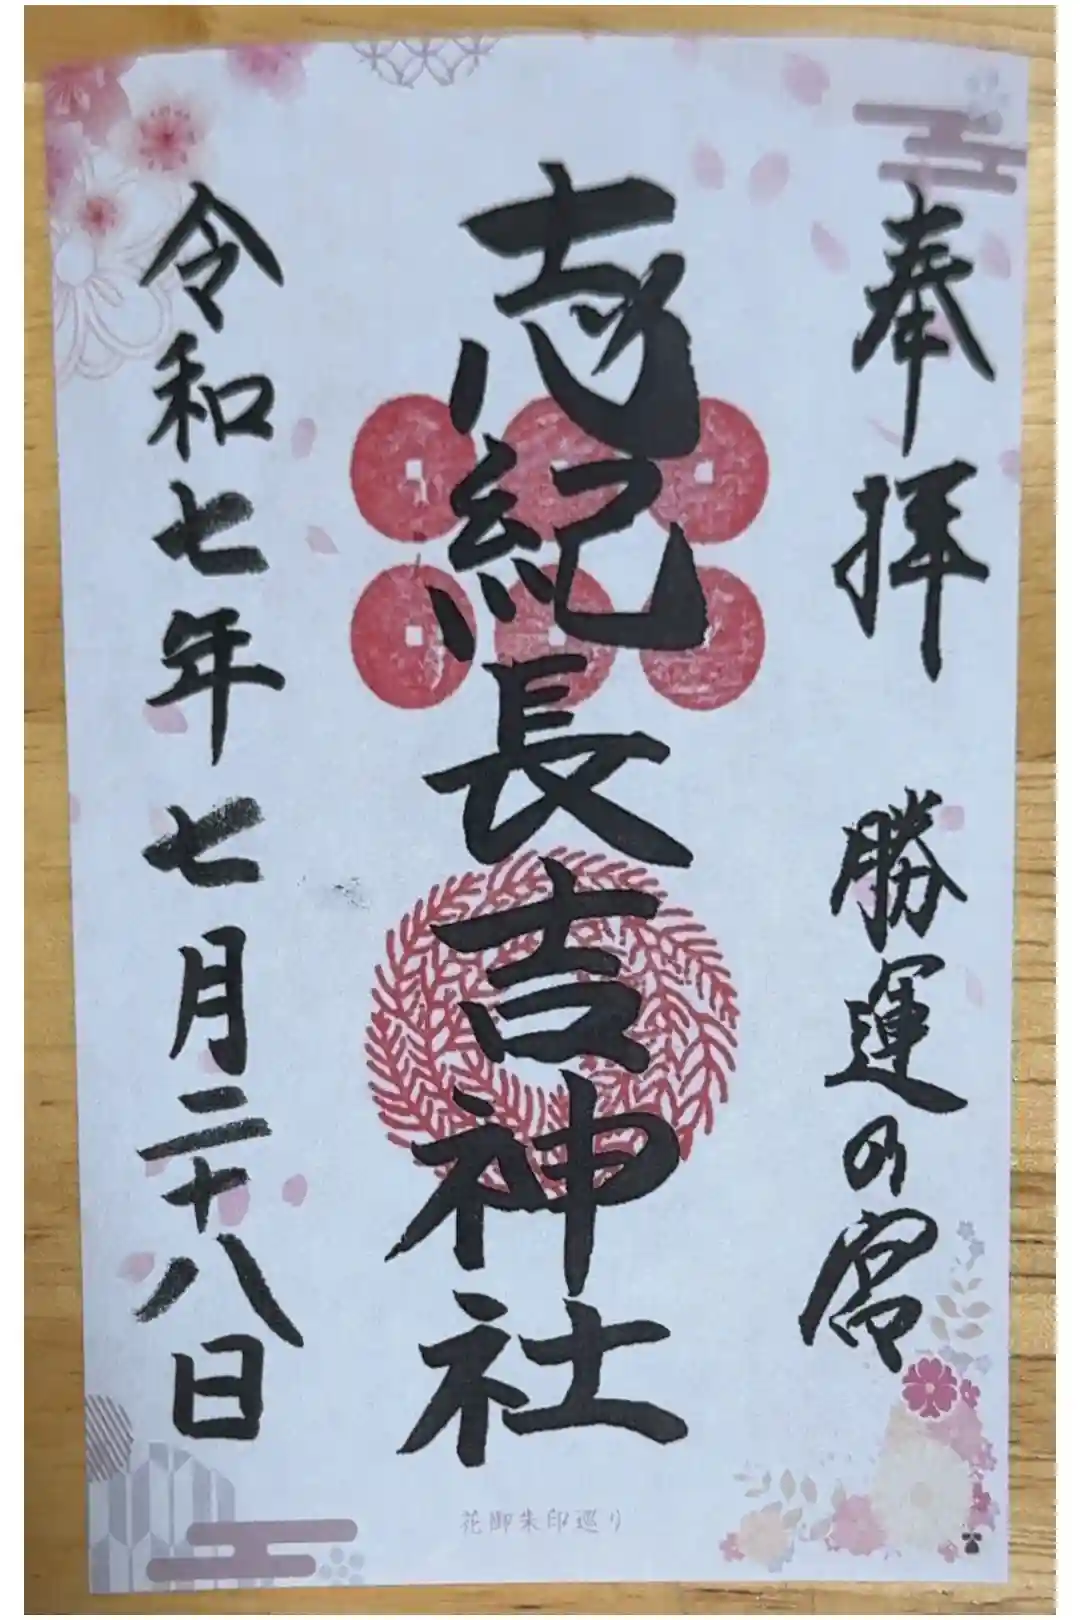 奉拝　勝運の宮
志紀長吉神社
令和七年七月二十八日
花御朱印巡り